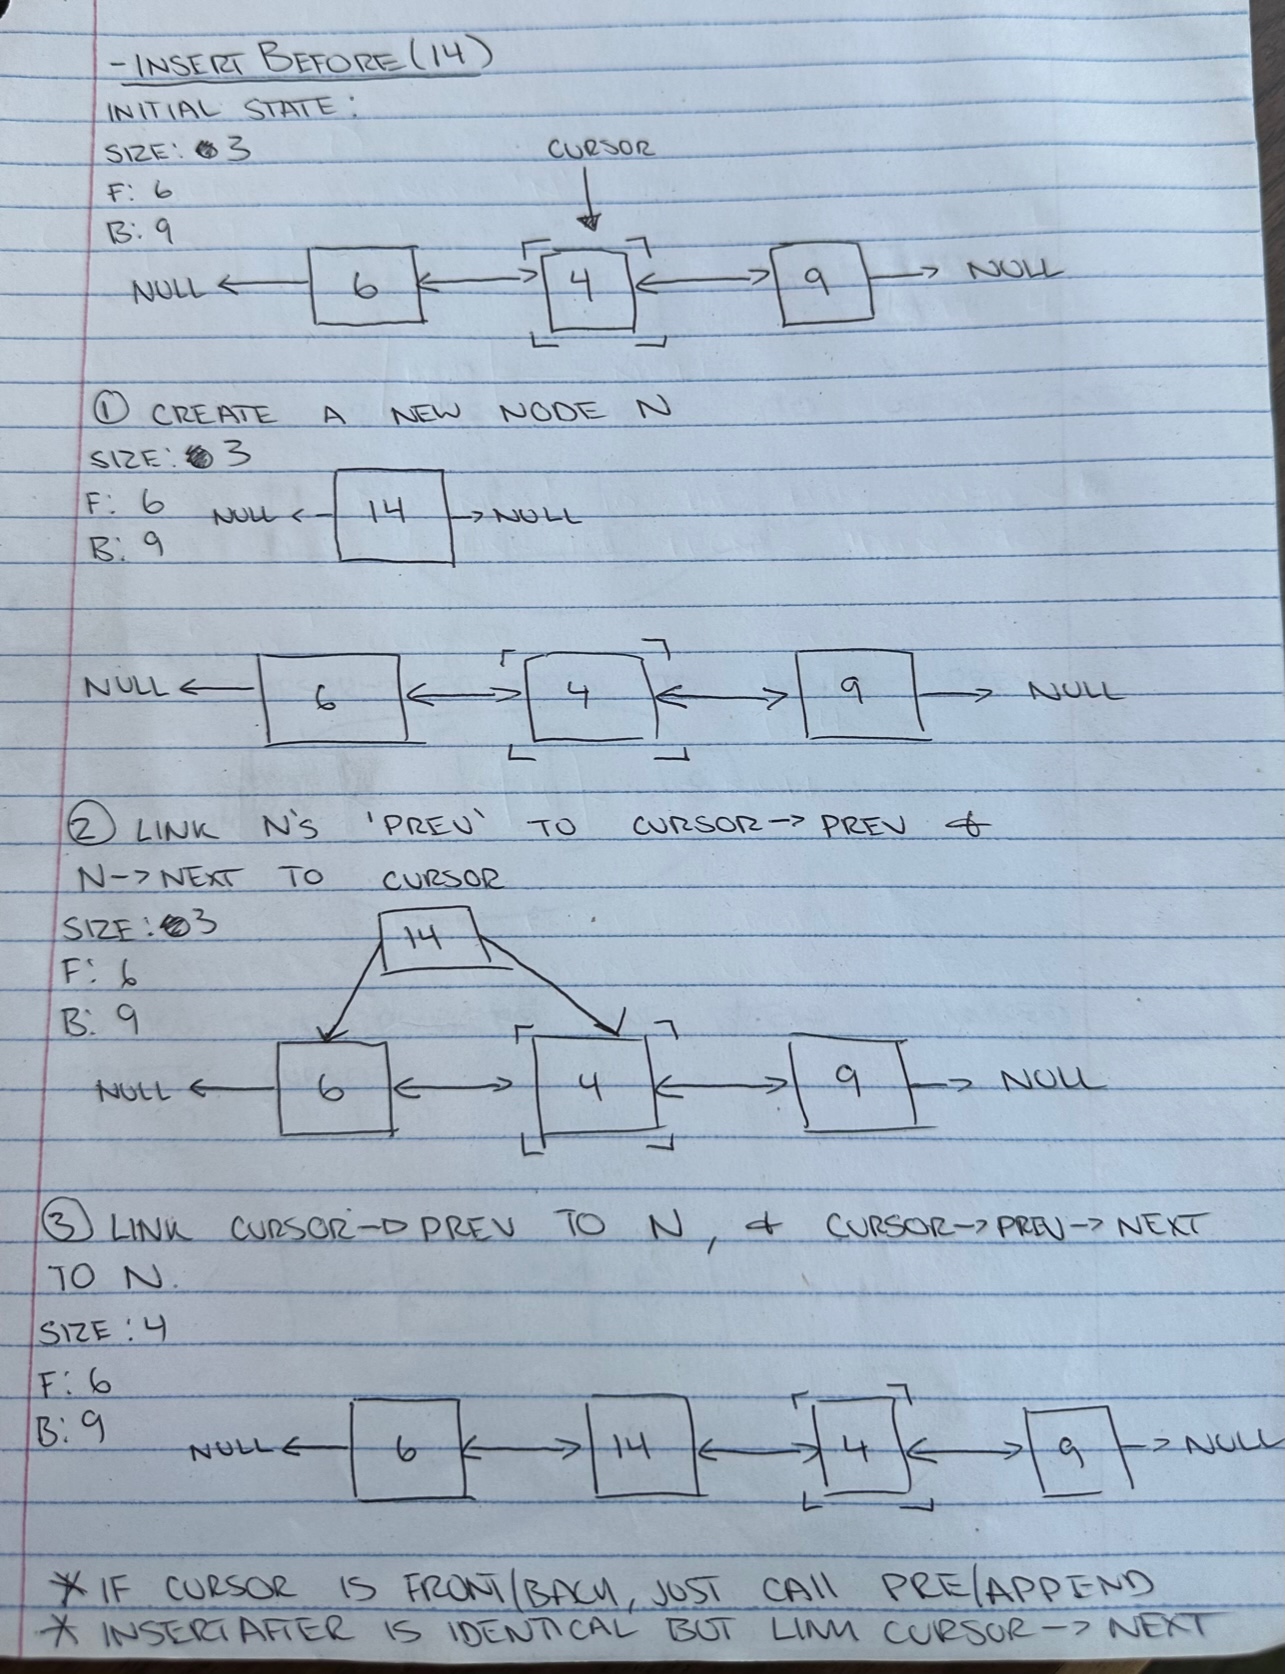 - INSERT BEFORE(14)
INITIAL STATE:
SIZE: 3
CURSOR
F: 6
B: 9
NULL 6 4 9 NULL
① CREATE A NEW NODE N
SIZE: 3
F: 6
NULL 14 NULL
B: 9
NULL 6 4 9 NULL
② LINK N'S 'PREV' TO CURSOR-> PREV &
N-> NEXT TO CURSOR
SIZE: 3
14
F: 6
B: 9
NULL 6 4 9 NULL
③ LINK CURSOR-> PREV TO N, & CURSOR->PREV-> NEXT
TO N.
SIZE: 4
F: 6
B: 9
NULL 6 14 4 9 NULL
* IF CURSOR IS FRONT/BACK, JUST CALL PRE/APPEND
* INSERTAFTER IS IDENTICAL BUT LINK CURSOR-> NEXT